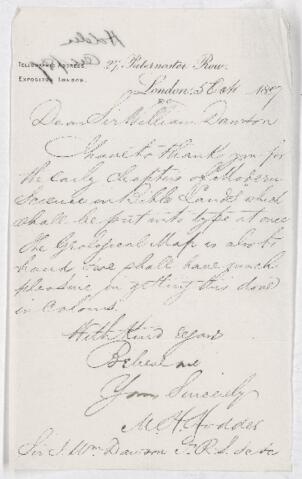 Hodder
Oct /87
TELEGRAPHIC ADDRESS
EXPOSITOR LONDON.
27, Paternoster Row,
London, 5 Oct 1887
Dear Sir William Dawson
I have to thank you for
the early chapters of Modern
Science in Bible Lands which
shall be put into type at once
The Geological Map is also to
hand, & we shall have much
pleasure in getting this done
in Colours.
With Kind regards
Believe me
Yours Sincerely
M. H. Hodder
Sir J. Wm Dawson F.R.S. &c &c